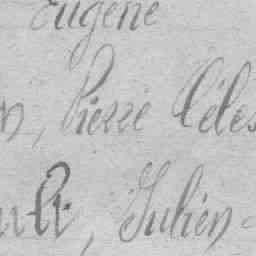 Eugène
n, Pierre Céles
Julien-